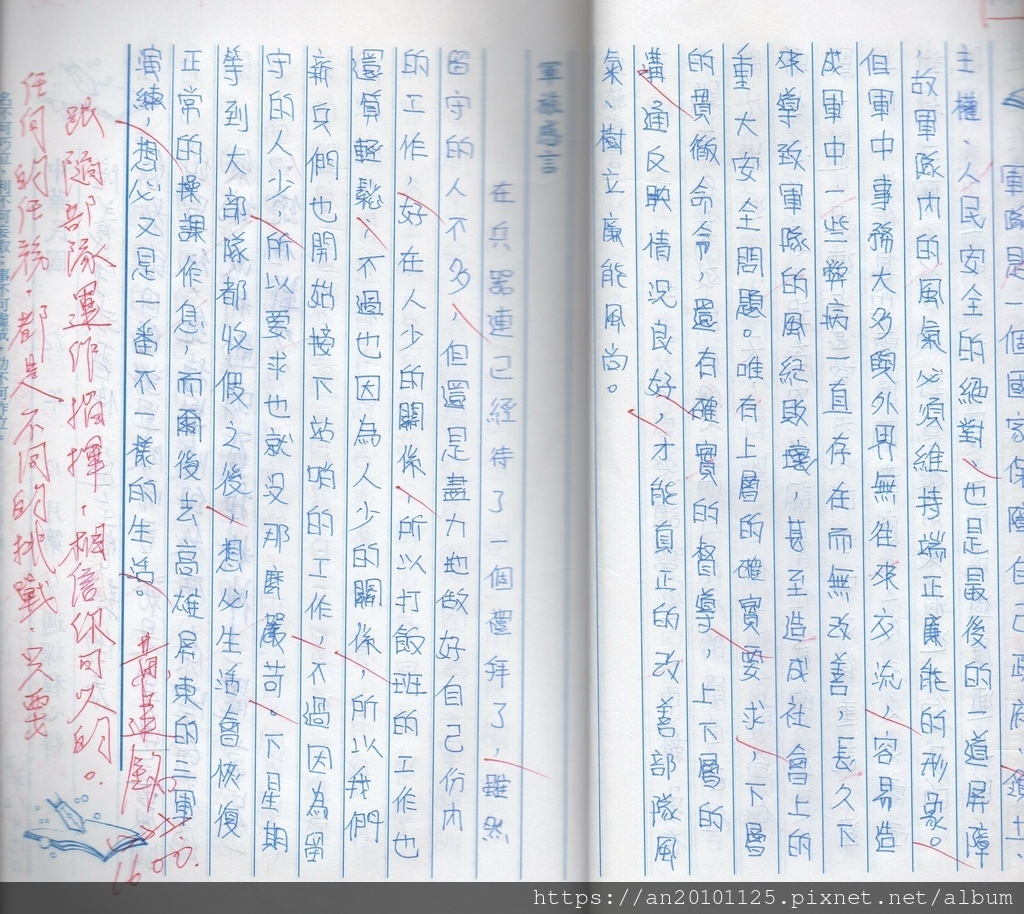 軍隊是一個國家保障自己政府、領土、
主權、人民安全的絕對、也是最後的一道屏障
，故軍隊內的風氣必須維持端正廉能的形象。
但軍中事務大多與外界無往來交流，容易造
成軍中一些弊病一直存在而無改善，長久下
來導致軍隊的風紀敗壞，甚至造成社會上的
重大安全問題。唯有上層的確實要求，下層
的貫徹命令，還有確實的督導，上下層的
溝通反映情況良好，才能真正的改善部隊風
氣、樹立廉能風尚。
軍旅感言
在兵器連已經待了一個禮拜了，雖然
留守的人不多，但還是盡力地做好自己份內
的工作，好在人少的關係，所以打飯班的工作也
還算輕鬆，不過也因為人少的關係，所以我們
新兵們也開始接下站哨的工作，不過因為留
守的人少，所以要求也就沒那麼嚴苛。下星期
等到大部隊都收假之後，想必生活會恢復
正常的操課作息，而爾後去高雄屏東的三軍
演練，想必又是一番不一樣的生活。
跟隨部隊運作指揮，相信你可以的。
任何的任務，都是不同的挑戰，只要
1600.
https://an20101125.pixnet.net/album